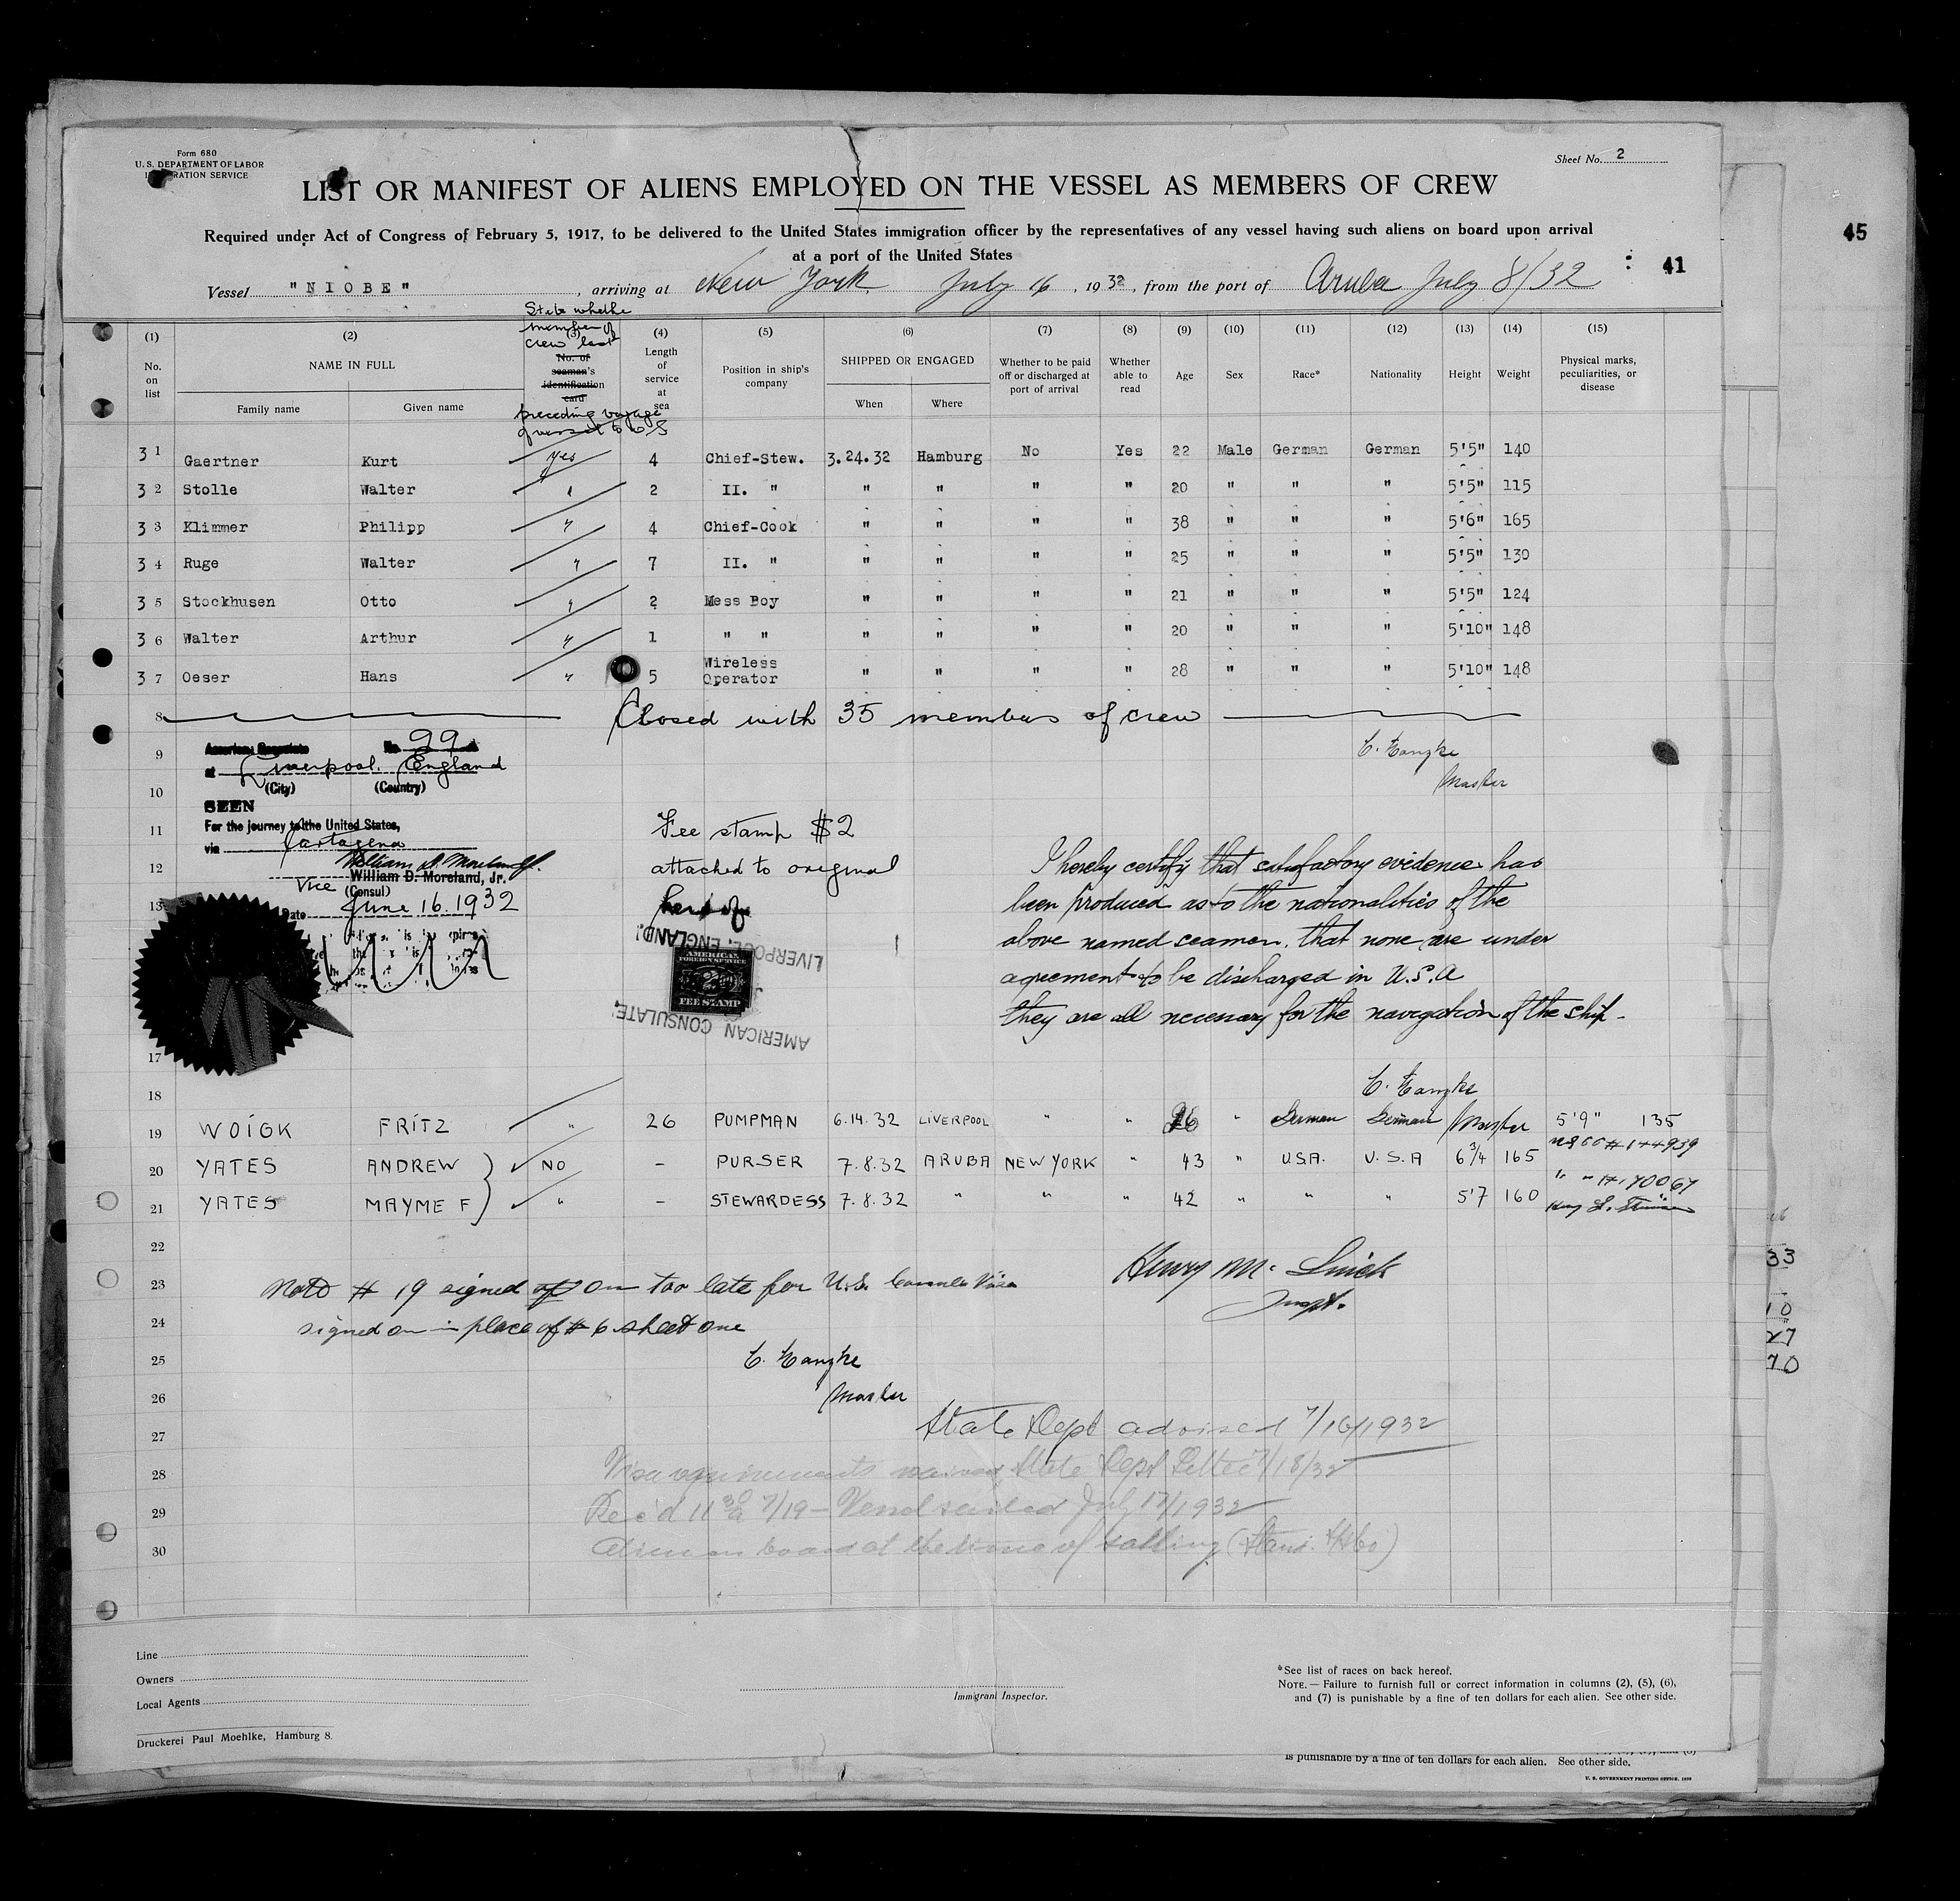 Form 680
U. S. DEPARTMENT OF LABOR
RATION SERVICE
Sheet No. 2
LIST OR MANIFEST OF ALIENS EMPLOYED ON THE VESSEL AS MEMBERS OF CREW
Required under Act of Congress of February 5, 1917, to be delivered to the United States immigration officer by the representatives of any vessel having such aliens on board upon arrival
at a port of the United States
45
41
Vessel "NIOBE", arriving at New York July 16, 1932, from the port of Aruba July 8/32
State whether member of crew last preceding voyage of vessel to U S
(1) (2) (3) (4) (5) (6) (7) (8) (9) (10) (11) (12) (13) (14) (15)
No. on list
NAME IN FULL
Family name Given name
No. of seaman's identification card
Length of service at sea
Position in ship's company
SHIPPED OR ENGAGED
When Where
Whether to be paid off or discharged at port of arrival
Whether able to read
Age Sex Race* Nationality Height Weight
Physical marks, peculiarities, or disease
3 1 Gaertner Kurt yes 4 Chief-Stew. 3.24.32 Hamburg No Yes 22 Male German German 5'5" 140
3 2 Stolle Walter " 2 II. " " " " " 20 " " " 5'5" 115
3 3 Klimmer Philipp " 4 Chief-Cook " " " " 38 " " " 5'6" 165
3 4 Ruge Walter " 7 II. " " " " " 25 " " " 5'5" 130
3 5 Stockhusen Otto " 2 Mess Boy " " " " 21 " " " 5'5" 124
3 6 Walter Arthur " 1 " " " " " " 20 " " " 5'10" 148
3 7 Oeser Hans " 5 Wireless Operator " " " " 28 " " " 5'10" 148
8 Closed with 35 members of crew
9
American Consulate No. 99
at Liverpool, England
(City) (Country)
10
Master
SEEN
11
For the journey to the United States,
via Cartagena
12
William D. Moreland Jr.
William D. Moreland, Jr.
Vice (Consul)
13
Date June 16, 1932
Fee stamp $2
attached to original
hereof
LIVERPOOL, ENGLAND.
AMERICAN
FOREIGN SERVICE
2
FEE STAMP
AMERICAN CONSULATE
I hereby certify that satisfactory evidence has
been produced as to the nationalities of the
above named seamen, that none are under
agreement to be discharged in U.S.A
they are all necessary for the navigation of the ship.
17
18
Master
19 WOIGK FRITZ " 26 PUMPMAN 6.14.32 LIVERPOOL " " 26 " German German 5'9" 135
20 YATES ANDREW NO - PURSER 7.8.32 ARUBA NEW YORK " 43 " U.S.A. U.S.A 6 3/4 165
21 YATES MAYME F " - STEWARDESS 7.8.32 " " " 42 " " " 5'7 160
22
23
Note # 19 signed on too late for U.S. Consular Visa
24
signed on in place of # 6 sheet one
25
26
Master
Henry M.
Inspt.
27
State Dept advised 7/16/1932
28
Visa requirements waived State Dept Letter 7/18/32
29
Rec'd 11 30 a 7/19 - Vessel sailed July 17/1932
30
Alien on board at the time of sailing
33
10
27
70
Line
Owners
Local Agents
Immigrant Inspector.
*See list of races on back hereof.
NOTE. — Failure to furnish full or correct information in columns (2), (5), (6),
and (7) is punishable by a fine of ten dollars for each alien. See other side.
Druckerei Paul Moehlke, Hamburg 8.
is punishable by a fine of ten dollars for each alien. See other side.
U. S. GOVERNMENT PRINTING OFFICE